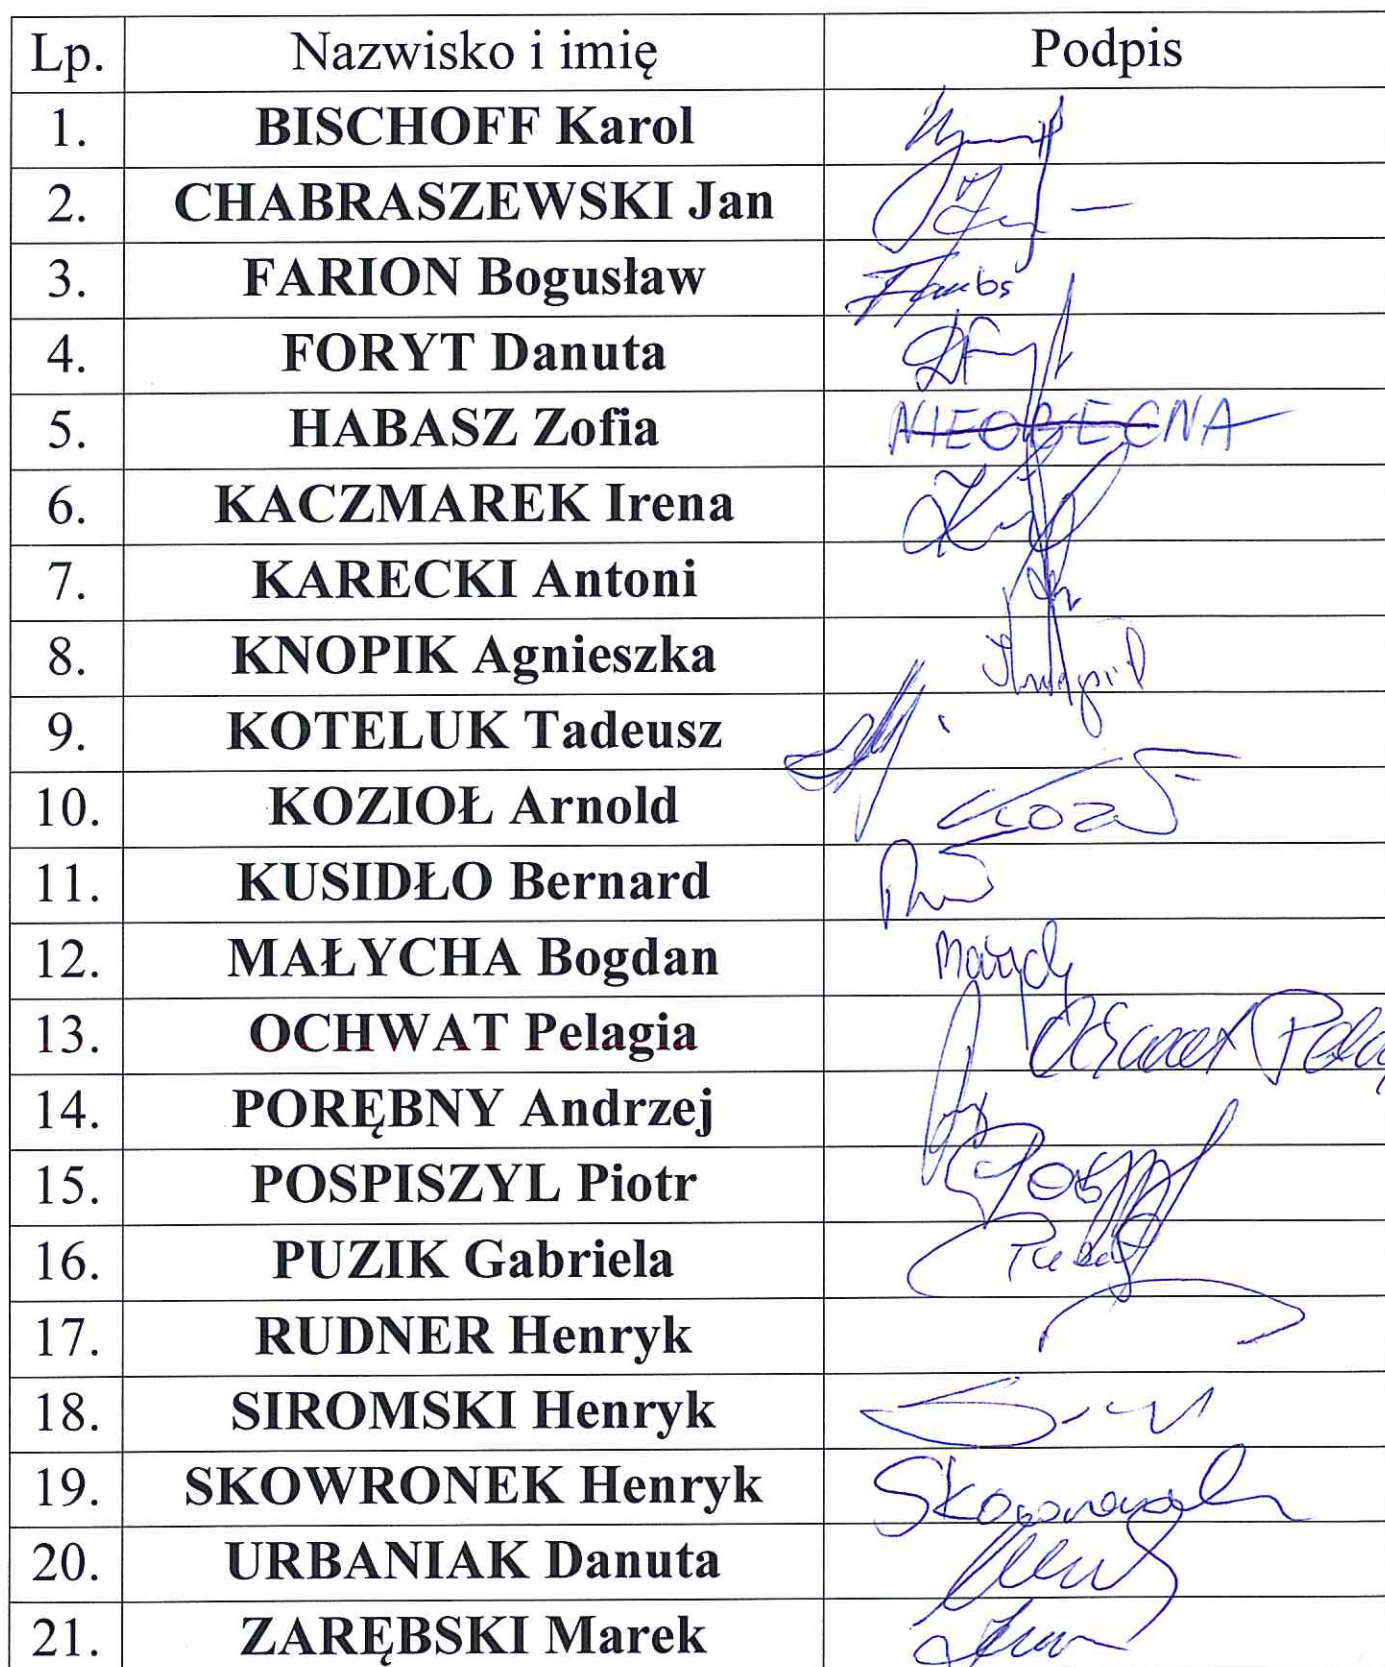 Lp. Nazwisko i imię Podpis
1. BISCHOFF Karol
2. CHABRASZEWSKI Jan
3. FARION Bogusław
4. FORYT Danuta
5. HABASZ Zofia NIEOBECNA
6. KACZMAREK Irena
7. KARECKI Antoni
8. KNOPIK Agnieszka
9. KOTELUK Tadeusz
10. KOZIOŁ Arnold
11. KUSIDŁO Bernard
12. MAŁYCHA Bogdan
13. OCHWAT Pelagia
14. PORĘBNY Andrzej
15. POSPISZYL Piotr
16. PUZIK Gabriela
17. RUDNER Henryk
18. SIROMSKI Henryk
19. SKOWRONEK Henryk Skowronek
20. URBANIAK Danuta
21. ZARĘBSKI Marek